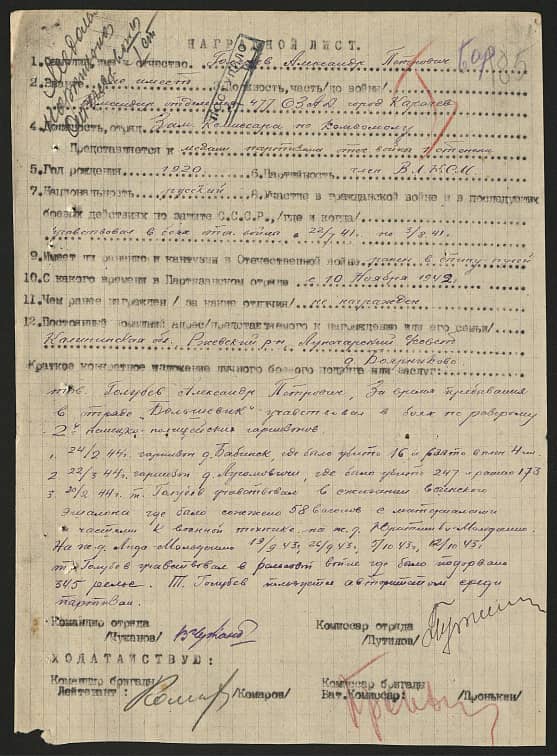 НАГРАДНОЙ ЛИСТ.
85
1. отчество. Александр Петрович
2. Должность, часть/до войны/
477 ОЗАД город Карачев
4. Должность, отряд Зам. Комиссара по комсомолу
Представляется к медали партизана отеч войны II степени
5. Год рождения 1920 6. Партийность член ВЛКСМ
7. Национальность русский 8. Участие в гражданской войне и в последующих
боевых действиях по защите С.С.С.Р., /где и когда/
участвовал в боях отеч. войны с 22/7 41. по 3/8 41.
9. Имеет ли ранения и контузии в Отечественной войне ранен в спину пулей
10. С какого времени в Партизанском отряде с 10 Ноября 1942г
11. Чем ранее награжден /за какие отличия/ не награжден
12. Постоянный домашний адрес/представляемого к награждению или его семьи/
Калининская обл. Ржевский р-н,
Краткое конкретное изложение личного боевого подвига или заслуг:
тов. Голубев Александр Петрович, За время пребывания
в отряде „Большевик" участвовал в боях по разгрому
2х немецко-полицейских гарнизонов.
1. 24/2 44г. гарнизон д. Бабинск, где было убито 16 и взято в плен 4 чел.
2 22/3 44г гарнизон д. где было убито 247 и ранено 173
3 20/2 44г. т. Голубев участвовал в сжигании воинского
эшалона где было сожжено 58 вагонов с материалами
и частями к военной технике на ж.д.
На ж.д. Лида-Молодечно 19/9 43г, 26/9 43г, 5/10 43г, 12/10 43г
т. Голубев участвовал в рельсовой войне где было подорвано
345 рельс. Т. Голубев пользуется авторитетом среди
партизан.
Командир отряда Комиссар отряда
/Чужанов/ /Путилов/
ХОДАТАЙСТВУЮ:
Командир бригады Комиссар бригады
Лейтенант: /Комаров/ Бат.Комиссар: /Пронькин/